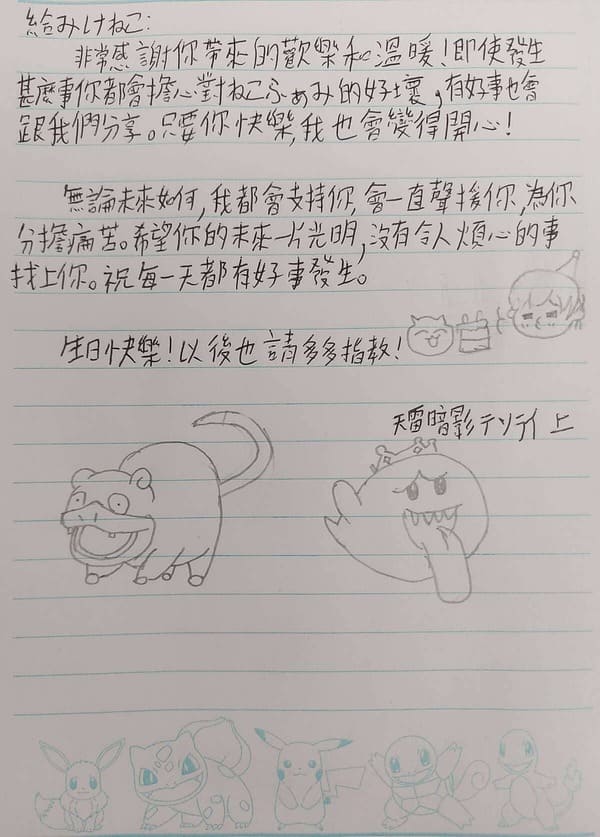 給みけねこ:
非常感謝你帶來的歡樂和溫暖!即使發生
甚麼事你都會擔心對ねこふぁみ的好壞,有好事也會
跟我們分享。只要你快樂,我也會變得開心!
無論未來如何,我都會支持你,會一直聲援你,為你
分擔痛苦。希望你的未來一片光明,沒有令人煩心的事
找上你。祝每一天都有好事發生。
生日快樂!以後也請多多指教!
天雷暗影テンライ 上